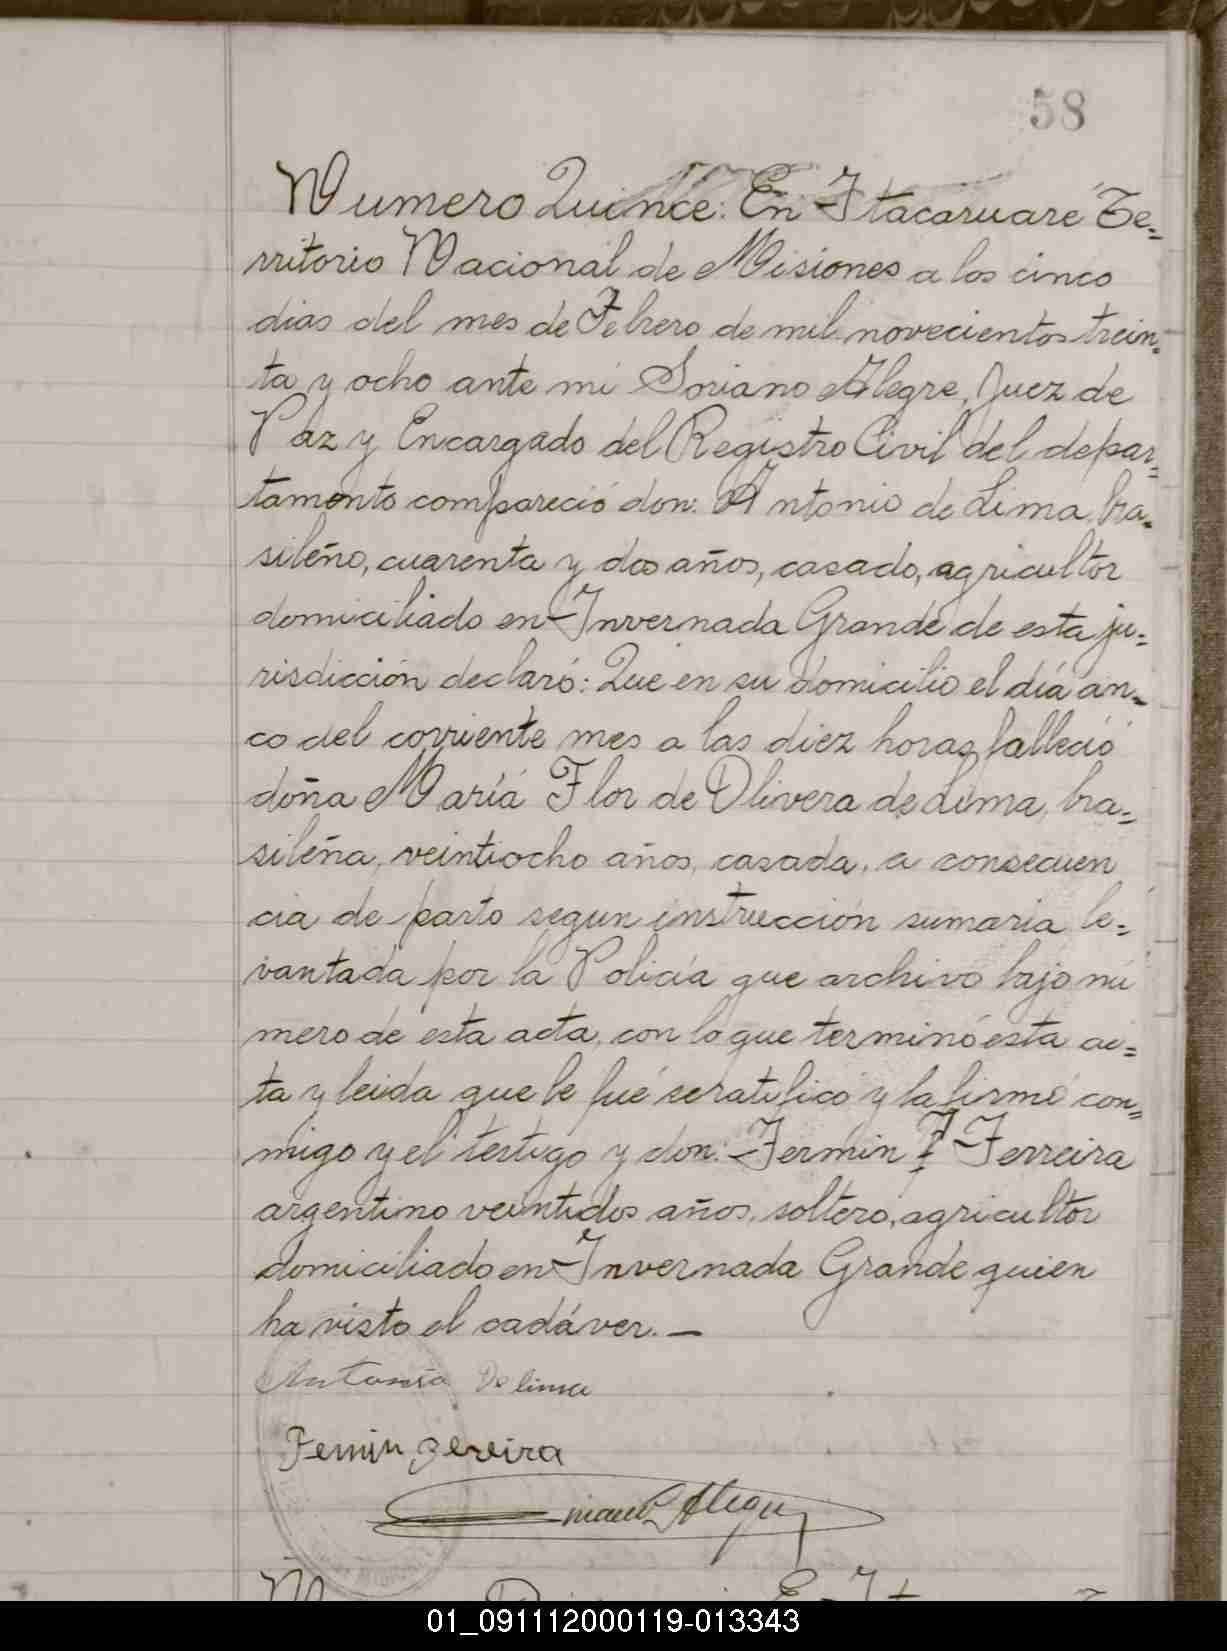 58
Numero Quince: En Itacaruaré Te=
rritorio Nacional de Misiones a los cinco
dias del mes de Febrero de mil novecientos trein=
ta y ocho ante mi Soriano Alegre, Juez de
Paz y Encargado del Registro Civil del depar=
tamento compareció don: Antonio de Lima, bra=
sileño, cuarenta y dos años, casado, agricultor
domiciliado en Invernada Grande de esta ju=
risdicción declaró: Que en su domicilio el día cin=
co del corriente mes a las diez horas falleció
doña María Flor de Olivera de Lima, bra=
sileña, veintiocho años, casada, a consecuen
cia de parto segun instrucción sumaria le=
vantada por la Policía que archivo bajo nú
mero de esta acta, con lo que terminó esta ac=
ta y leida que le fué se ratificó y la firmó con=
migo y el testigo y don: Fermin F Ferreira
argentino veintidos años, soltero, agricultor
domiciliado en Invernada Grande quien
ha visto el cadáver. —
Antonio De lima
Femin Fereira
Alegre
01_091112000119-013343